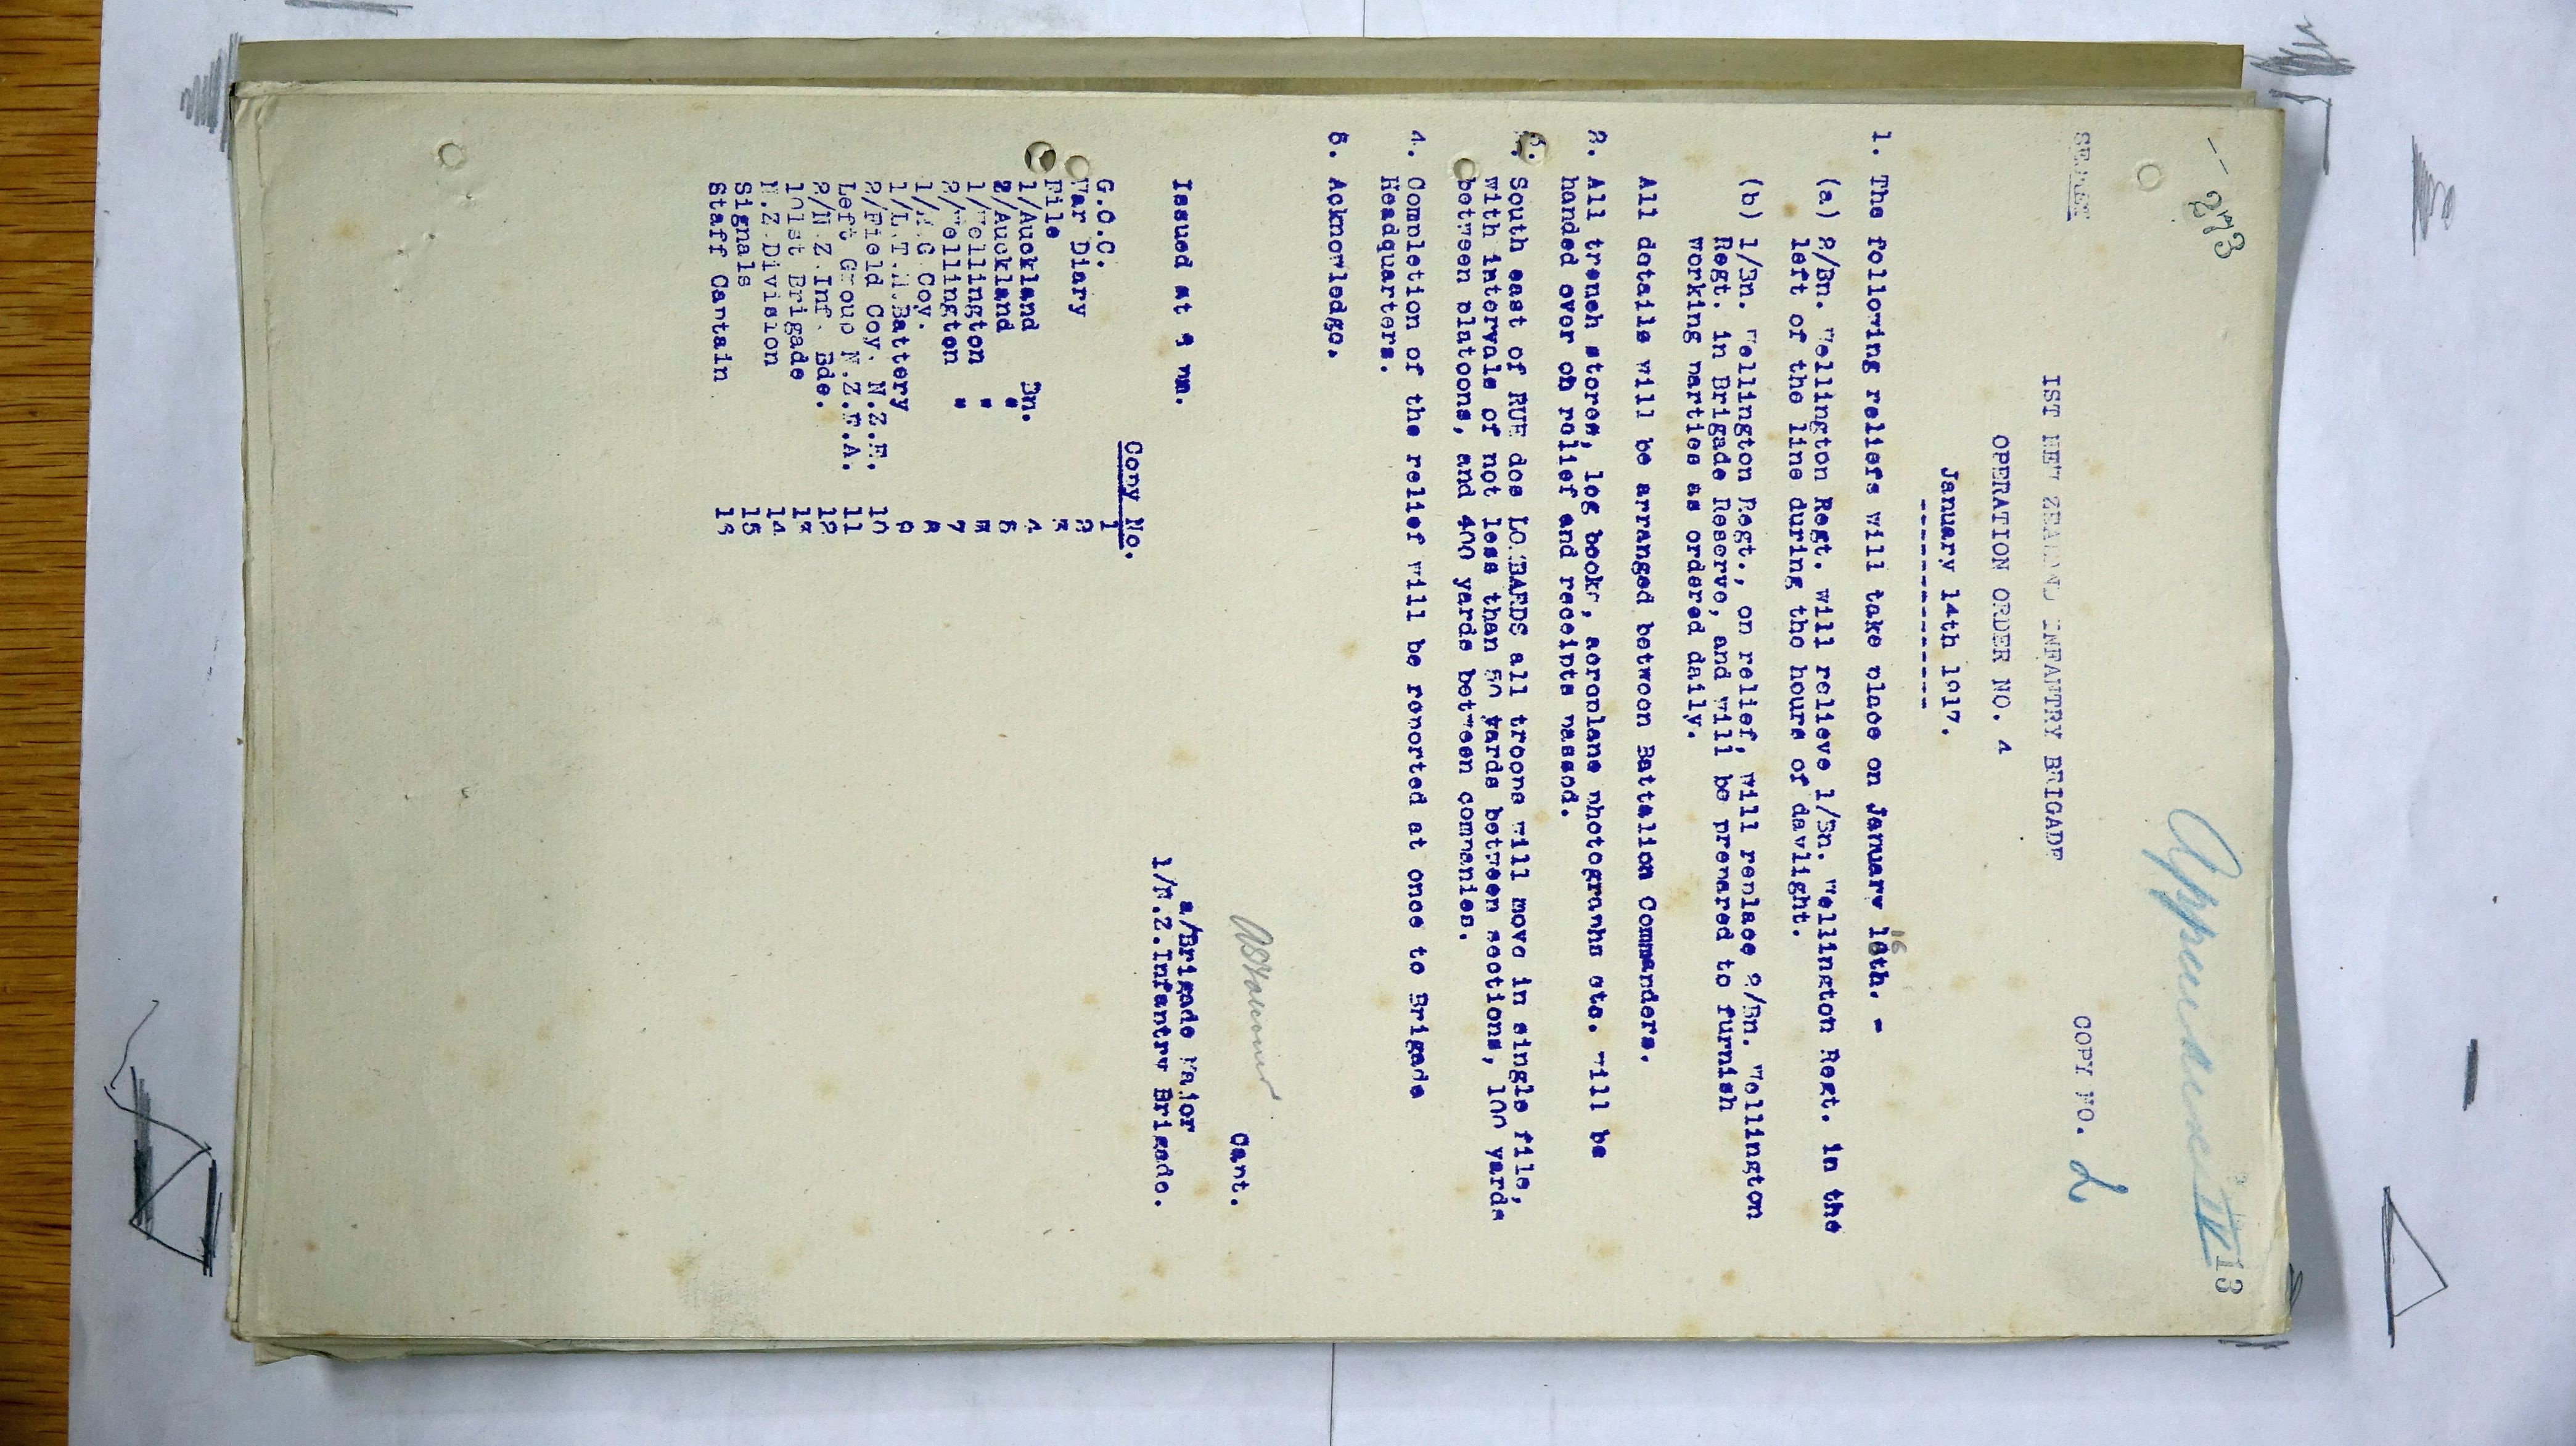 -- 273
Appendix IV
13
SECRET
COPY NO. 2
1ST NEW ZEALAND INFANTRY BRIGADE
OPERATION ORDER NO. 4
January 14th 1917.
------------
16
1. The following reliefs will take place on January 16th. -
(a) 2/Bn. Wellington Regt. will relieve 1/Bn. Wellington Regt. in the
left of the line during the hours of daylight.
(b) 1/Bn. Wellington Regt., on relief, will replace 2/Bn. Wellington
Regt. in Brigade Reserve, and will be prepared to furnish
working parties as ordered daily.
All details will be arranged between Battalion Commanders.
2. All trench stores, log books, aeroplane photographs etc. will be
handed over on relief and receipts passed.
3. South east of RUE des LOMBARDS all troops will move in single file,
with intervals of not less than 50 yards between sections, 100 yards
between platoons, and 400 yards between companies.
4. Completion of the relief will be reported at once to Brigade
Headquarters.
5. Acknowledge.
Capt.
a/Brigade Major
1/N.Z.Infantry Brigade.
Issued at 9 pm.
Copy No.
G.O.C. 1
War Diary 2
File 3
1/Auckland Bn. 4
2/Auckland " 5
1/Wellington " 6
2/Wellington " 7
1/M.G Coy. 8
1/L.T.M.Battery 9
2/Field Coy. N.Z.E. 10
Left Group N.Z.F.A. 11
2/N.Z.Inf. Bde. 12
101st Brigade 13
N.Z.Division 14
Signals 15
Staff Captain 16